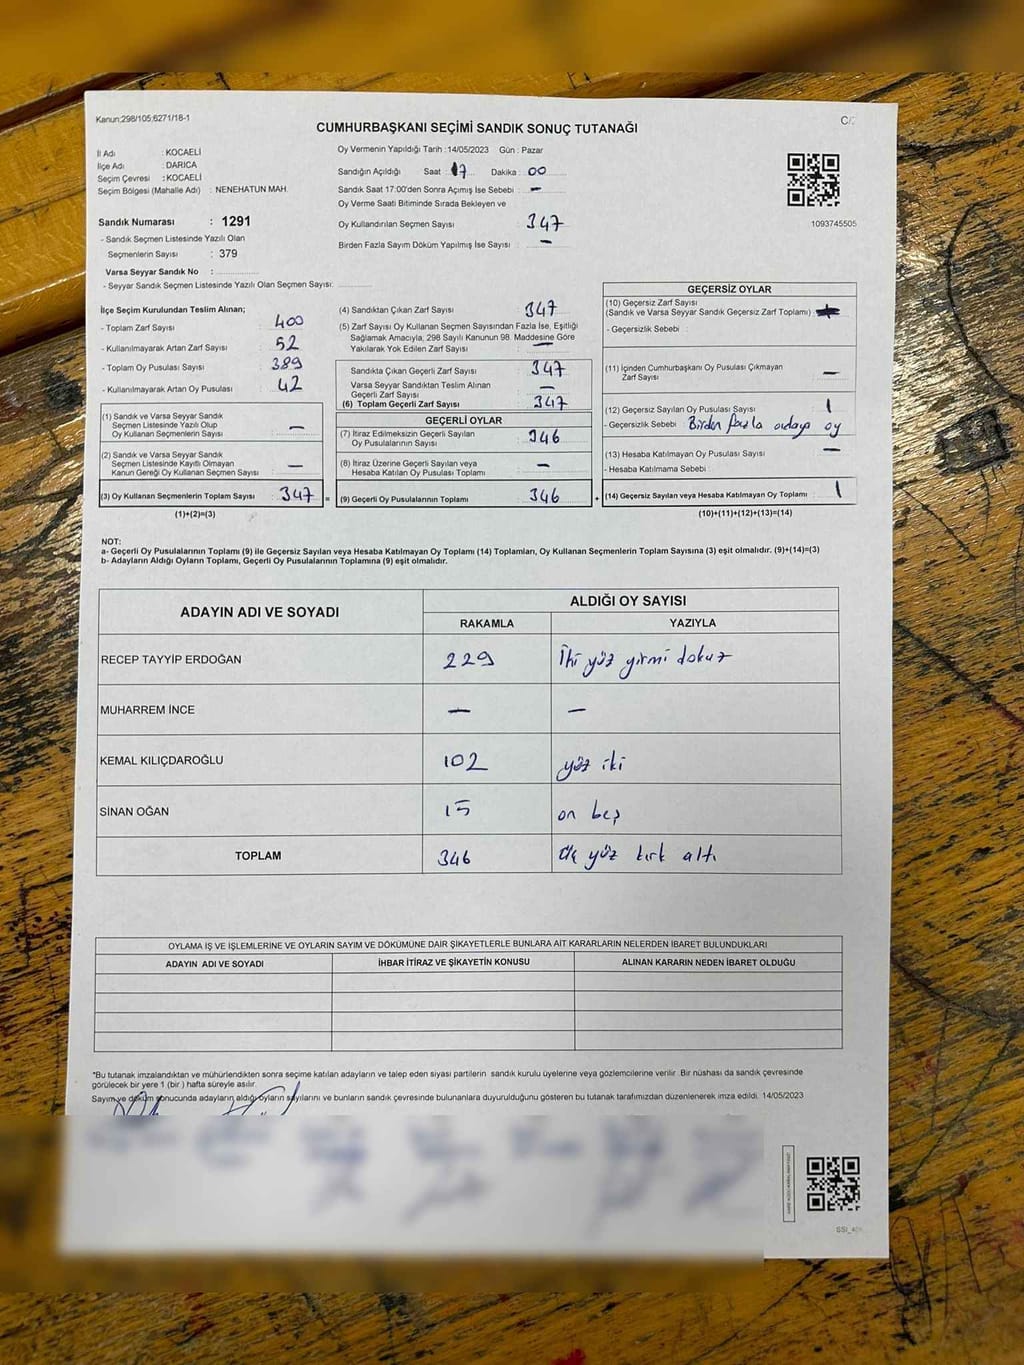 Kanun;298/105;6271/18-1
C/
CUMHURBAŞKANI SEÇİMİ SANDIK SONUÇ TUTANAĞI
İl Adı : KOCAELİ
İlçe Adı : DARICA
Seçim Çevresi : KOCAELİ
Seçim Bölgesi (Mahalle Adı) : NENEHATUN MAH.
Sandık Numarası : 1291
- Sandık Seçmen Listesinde Yazılı Olan
Seçmenlerin Sayısı : 379
Varsa Seyyar Sandık No :
- Seyyar Sandık Seçmen Listesinde Yazılı Olan Seçmen Sayısı:
Oy Vermenin Yapıldığı Tarih : 14/05/2023 Gün : Pazar
Sandığın Açıldığı Saat 17 Dakika : 00
Sandık Saat 17:00'den Sonra Açımış İse Sebebi : -
Oy Verme Saati Bitiminde Sırada Bekleyen ve
Oy Kullandırılan Seçmen Sayısı 347
Birden Fazla Sayım Döküm Yapılmış İse Sayısı : -
1093745505
İlçe Seçim Kurulundan Teslim Alınan;
- Toplam Zarf Sayısı : 400
- Kullanılmayarak Artan Zarf Sayısı : 52
- Toplam Oy Pusulası Sayısı : 389
- Kullanılmayarak Artan Oy Pusulası : 42
(1) Sandık ve Varsa Seyyar Sandık
Seçmen Listesinde Yazılı Olup
Oy Kullanan Seçmenlerin Sayısı : -
(2) Sandık ve Varsa Seyyar Sandık
Seçmen Listesinde Kayıtlı Olmayan
Kanun Gereği Oy Kullanan Seçmen Sayısı : -
(3) Oy Kullanan Seçmenlerin Toplam Sayısı : 347 =
(1)+(2)=(3)
(4) Sandıktan Çıkan Zarf Sayısı : 347
(5) Zarf Sayısı Oy Kullanan Seçmen Sayısından Fazla İse, Eşitliği
Sağlamak Amacıyla; 298 Sayılı Kanunun 98. Maddesine Göre
Yakılarak Yok Edilen Zarf Sayısı : -
Sandıkta Çıkan Geçerli Zarf Sayısı : 347
Varsa Seyyar Sandıktan Teslim Alınan
Geçerli Zarf Sayısı : -
(6) Toplam Geçerli Zarf Sayısı : 347
GEÇERLİ OYLAR
(7) İtiraz Edilmeksizin Geçerli Sayılan
Oy Pusulalarının Sayısı : 346
(8) İtiraz Üzerine Geçerli Sayılan veya
Hesaba Katılan Oy Pusulası Toplamı : -
(9) Geçerli Oy Pusulalarının Toplamı : 346 +
GEÇERSİZ OYLAR
(10) Geçersiz Zarf Sayısı
(Sandık ve Varsa Seyyar Sandık Geçersiz Zarf Toplamı) :
- Geçersizlik Sebebi :
(11) İçinden Cumhurbaşkanı Oy Pusulası Çıkmayan
Zarf Sayısı : -
(12) Geçersiz Sayılan Oy Pusulası Sayısı : 1
- Geçersizlik Sebebi : Birden fazla adaya oy
(13) Hesaba Katılmayan Oy Pusulası Sayısı : -
- Hesaba Katılmama Sebebi :
(14) Geçersiz Sayılan veya Hesaba Katılmayan Oy Toplamı : 1
(10)+(11)+(12)+(13)=(14)
NOT:
a- Geçerli Oy Pusulalarının Toplamı (9) ile Geçersiz Sayılan veya Hesaba Katılmayan Oy Toplamı (14) Toplamları, Oy Kullanan Seçmenlerin Toplam Sayısına (3) eşit olmalıdır. (9)+(14)=(3)
b- Adayların Aldığı Oyların Toplamı, Geçerli Oy Pusulalarının Toplamına (9) eşit olmalıdır.
ADAYIN ADI VE SOYADI
ALDIĞI OY SAYISI
RAKAMLA YAZIYLA
RECEP TAYYİP ERDOĞAN 229 İki yüz yirmi dokuz
MUHARREM İNCE - -
KEMAL KILIÇDAROĞLU 102 yüz iki
SİNAN OĞAN 15 on beş
TOPLAM 346 üç yüz kırk altı
OYLAMA İŞ VE İŞLEMLERİNE VE OYLARIN SAYIM VE DÖKÜMÜNE DAİR ŞİKAYETLERLE BUNLARA AİT KARARLARIN NELERDEN İBARET BULUNDUKLARI
ADAYIN ADI VE SOYADI İHBAR İTİRAZ VE ŞİKAYETİN KONUSU ALINAN KARARIN NEDEN İBARET OLDUĞU
*Bu tutanak imzalandıktan ve mühürlendikten sonra seçime katılan adayların ve talep eden siyasi partilerin sandık kurulu üyelerine veya gözlemcilerine verilir. Bir nüshası da sandık çevresinde
görülecek bir yere 1 (bir ) hafta süreyle asılır.
Sayım ve döküm sonucunda adayların aldığı oyların sayılarını ve bunların sandık çevresinde bulunanlara duyurulduğunu gösteren bu tutanak tarafımızdan düzenlenerek imza edildi. 14/05/2023